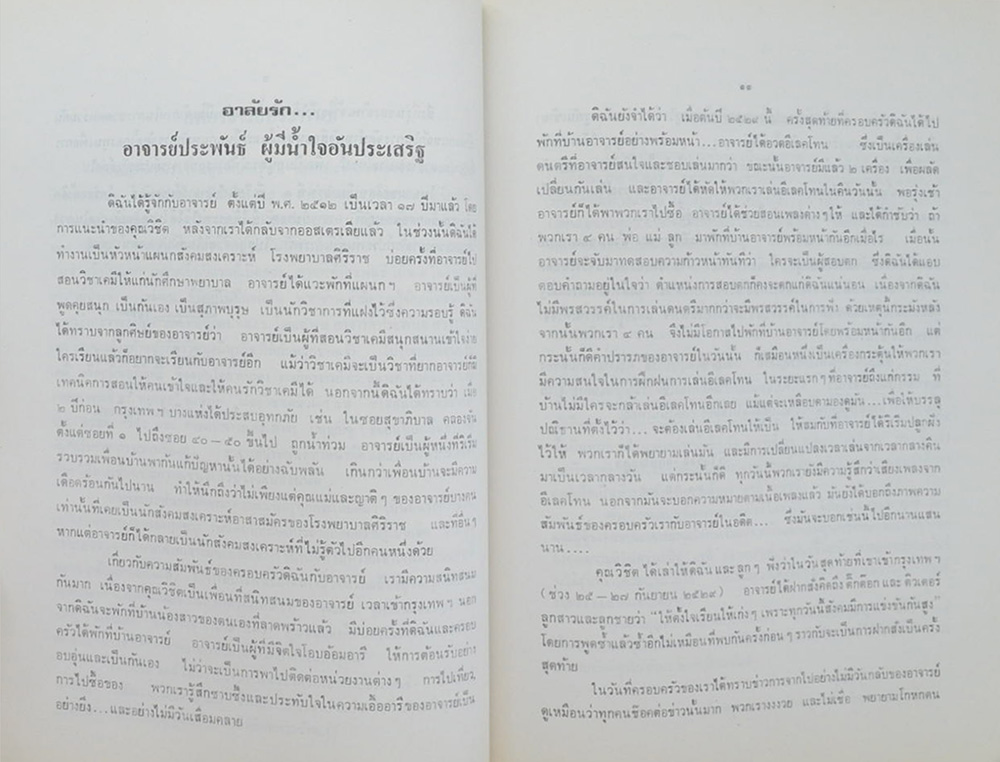 อาลัยรัก...
อาจารย์ประพันธ์ ผู้มีน้ำใจอันประเสริฐ
ดิฉันได้รู้จักกับอาจารย์ ตั้งแต่ปี พ.ศ. ๒๕๑๒ เป็นเวลา ๑๗ ปีมาแล้ว โดย
การแนะนำของคุณวิชิต หลังจากเราได้กลับจากออสเตรเลียแล้ว ในช่วงนั้นดิฉันได้
ทำงานเป็นหัวหน้าแผนกสังคมสงเคราะห์ โรงพยาบาลศิริราช บ่อยครั้งที่อาจารย์ไป
สอนวิชาเคมีให้แก่นักศึกษาพยาบาล อาจารย์ได้แวะพักที่แผนกฯ อาจารย์เป็นผู้ที่
พูดคุยสนุก เป็นกันเอง เป็นสุภาพบุรุษ เป็นนักวิชาการที่แฝงไว้ซึ่งความรอบรู้ ดิฉัน
ได้ทราบจากลูกศิษย์ของอาจารย์ว่า อาจารย์เป็นผู้ที่สอนวิชาเคมีสนุกสนานเข้าใจง่าย
ใครเรียนแล้วก็อยากจะเรียนกับอาจารย์อีก แม้ว่าวิชาเคมีจะเป็นวิชาที่ยากอาจารย์ก็มี
เทคนิคการสอนให้คนเข้าใจและให้คนรักวิชาเคมีได้ นอกจากนี้ดิฉันได้ทราบว่า เมื่อ
๒ ปีก่อน กรุงเทพฯ บางแห่งได้ประสบอุทกภัย เช่น ในซอยสุขาภิบาล คลองจั่น
ตั้งแต่ซอยที่ ๑ ไปถึงซอย ๔๐—๕๐ ขึ้นไป ถูกน้ำท่วม อาจารย์เป็นผู้หนึ่งที่ริเริ่ม
รวบรวมเพื่อนบ้านพากันแก้ปัญหานั้นได้อย่างฉับพลัน เกินกว่าเพื่อนบ้านจะมีความ
เดือดร้อนกันไปนาน ทำให้นึกถึงว่าไม่เพียงแต่คุณแม่และญาติๆ ของอาจารย์บางคน
เท่านั้นที่เคยเป็นนักสังคมสงเคราะห์อาสาสมัครของโรงพยาบาลศิริราช และที่อื่นๆ
หากแต่อาจารย์ก็ได้กลายเป็นนักสังคมสงเคราะห์ที่ไม่รู้ตัวไปอีกคนหนึ่งด้วย
เกี่ยวกับความสัมพันธ์ของครอบครัวดิฉันกับอาจารย์ เรามีความสนิทสนม
กันมาก เนื่องจากคุณวิชิตเป็นเพื่อนที่สนิทสนมของอาจารย์ เวลาเข้ากรุงเทพฯ นอก
จากดิฉันจะพักที่บ้านน้องสาวของตนเองที่ลาดพร้าวแล้ว มีบ่อยครั้งที่ดิฉันและครอบ
ครัวได้พักที่บ้านอาจารย์ อาจารย์เป็นผู้ที่มีจิตใจโอบอ้อมอารี ให้การต้อนรับอย่าง
อบอุ่นและเป็นกันเอง ไม่ว่าจะเป็นการพาไปติดต่อหน่วยงานต่างๆ การไปเที่ยว,
การไปซื้อของ พวกเรารู้สึกซาบซึ้งและประทับใจในความเอื้ออารีของอาจารย์เป็น
อย่างยิ่ง...และอย่างไม่มีวันเสื่อมคลาย
๑๑
ดิฉันยังจำได้ว่า เมื่อต้นปี ๒๕๒๙ นี้ ครั้งสุดท้ายที่ครอบครัวดิฉันได้ไป
พักที่บ้านอาจารย์อย่างพร้อมหน้า...อาจารย์ได้อวดอีเลคโทน ซึ่งเป็นเครื่องเล่น
ดนตรีที่อาจารย์สนใจและชอบเล่นมากว่า ขณะนั้นอาจารย์มีแล้ว ๒ เครื่อง เพื่อผลัด
เปลี่ยนกันเล่น และอาจารย์ได้หัดให้พวกเราเล่นอีเลคโทนในคืนวันนั้น พอรุ่งเช้า
อาจารย์ก็ได้พาพวกเราไปซื้อ อาจารย์ได้ช่วยสอนเพลงต่างๆให้ และได้กำชับว่า ถ้า
พวกเรา ๔ คน พ่อ แม่ ลูก มาพักที่บ้านอาจารย์พร้อมหน้ากันอีกเมื่อไร เมื่อนั้น
อาจารย์จะจับมาทดสอบความก้าวหน้าทันทีว่า ใครจะเป็นผู้สอบตก ซึ่งดิฉันได้แอบ
ตอบคำถามอยู่ในใจว่า ตำแหน่งการสอบตกก็คงจะตกแก่ดิฉันแน่นอน เนื่องจากดิฉัน
ไม่มีพรสวรรค์ในการเล่นดนตรีมากกว่าจะมีพรสวรรค์ในการฟัง ด้วยเหตุนี้กระมังหลัง
จากนั้นพวกเรา ๔ คน จึงไม่มีโอกาสไปพักที่บ้านอาจารย์โดยพร้อมหน้ากันอีก แต่
กระนั้นก็ดีคำปรารภของอาจารย์ในวันนั้น ก็เสมือนหนึ่งเป็นเครื่องกระตุ้นให้พวกเรา
มีความสนใจในการฝึกฝนการเล่นอีเลคโทน ในระยะแรกๆที่อาจารย์ถึงแก่กรรม ที่
บ้านไม่มีใครจะกล้าเล่นอีเลคโทนอีกเลย แม้แต่จะเหลือบตามองดูมัน...เพื่อให้บรรลุ
ปณิธานที่ตั้งไว้ว่า...จะต้องเล่นอีเลคโทนให้เป็น ให้สมกับที่อาจารย์ได้ริเริ่มปลูกฝัง
ไว้ให้ พวกเราก็ได้พยายามเล่นมัน และมีการเปลี่ยนแปลงเวลาเล่นจากเวลากลางคืน
มาเป็นเวลากลางวัน แต่กระนั้นก็ดี ทุกวันนี้พวกเรายังมีความรู้สึกว่าเสียงเพลงจาก
อีเลคโทน นอกจากมันจะบอกความหมายตามเนื้อเพลงแล้ว มันยังได้บอกถึงภาพความ
สัมพันธ์ของครอบครัวเรากับอาจารย์ในอดีต... ซึ่งมันจะบอกเช่นนี้ไปอีกนานแสน
นาน....
คุณวิชิต ได้เล่าให้ดิฉัน และลูกๆ ฟังว่าในวันสุดท้ายที่เขาเข้ากรุงเทพฯ
(ช่วง ๒๕—๒๗ กันยายน ๒๕๒๙) อาจารย์ได้ฝากสั่งคิดถึงติ๊กต๊อก และ ติวเตอร์
ลูกสาวและลูกชายว่า "ให้ตั้งใจเรียนให้เก่งๆ เพราะทุกวันนี้สังคมมีการแข่งขันกันสูง"
โดยการพูดซ้ำแล้วซ้ำอีกไม่เหมือนที่พบกันครั้งก่อนๆ ราวกับจะเป็นการฝากสั่งเป็นครั้ง
สุดท้าย
ในวันที่ครอบครัวของเราได้ทราบข่าวการจากไปอย่างไม่มีวันกลับของอาจารย์
ดูเหมือนว่าทุกคนช๊อคต่อข่าวนั้นมาก พวกเรางงงวย และไม่เชื่อ พยายามโกหกตน